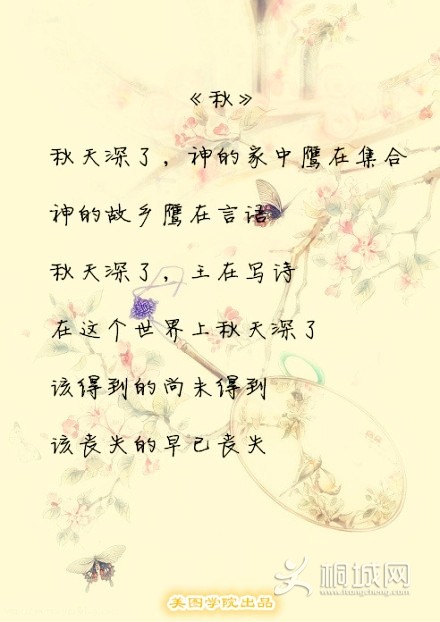 《秋》
秋天深了，神的家中鹰在集合
神的故乡鹰在言语
秋天深了，王在写诗
在这个世界上秋天深了
该得到的尚未得到
该丧失的早已丧失
美图学院出品
桐城网
www.itongcheng.com